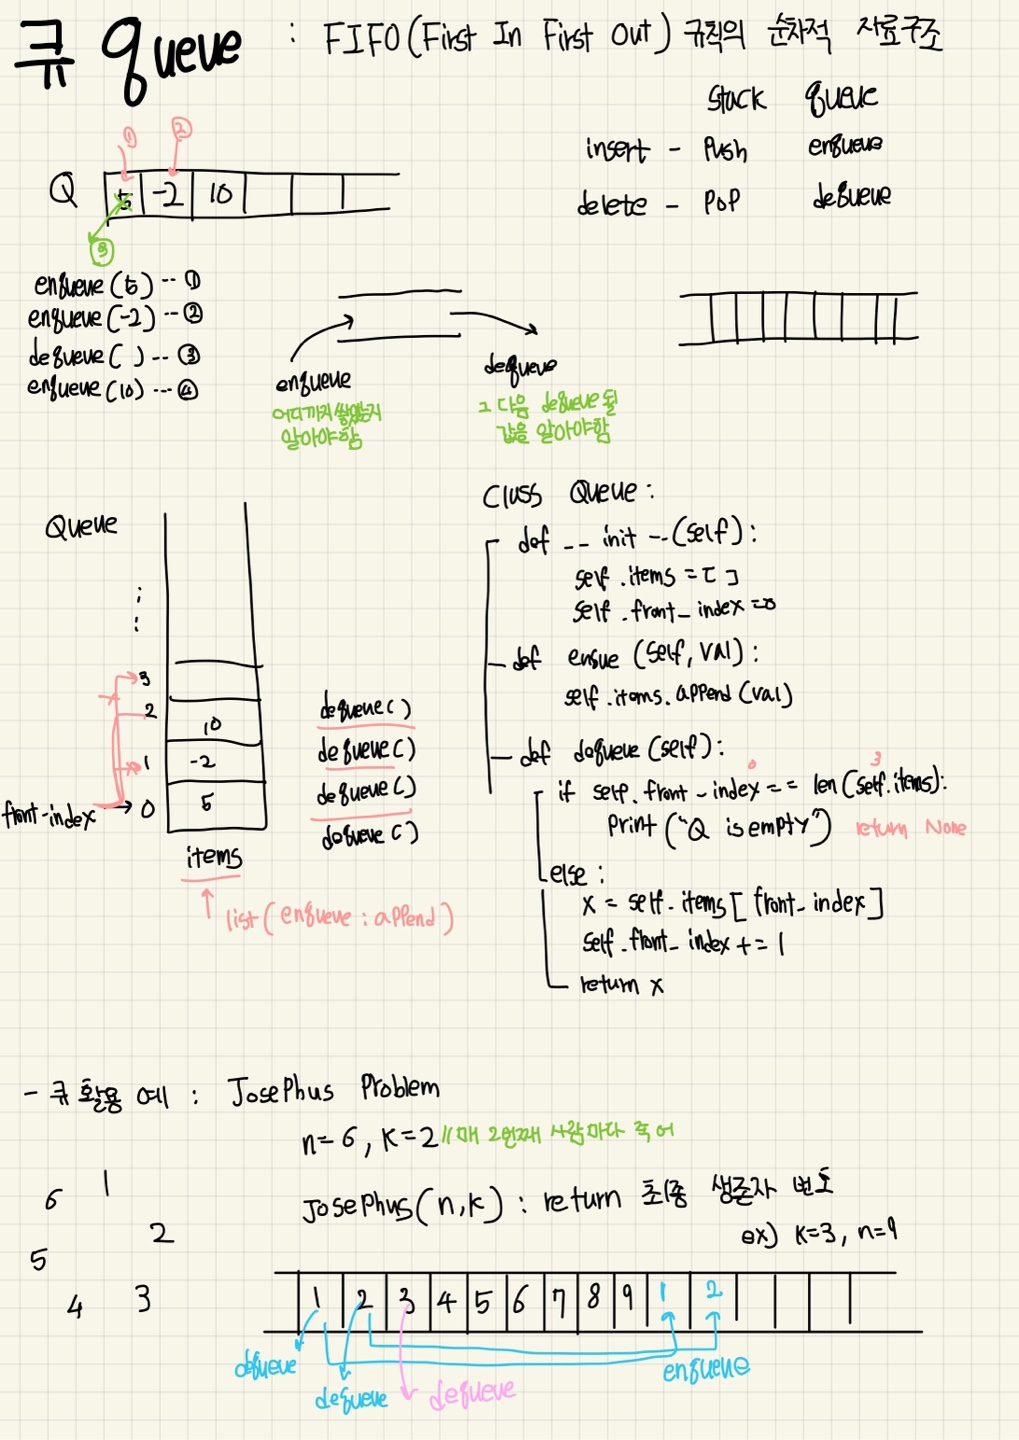 큐 queue : FIFO (First In First Out) 규칙의 순차적 자료구조
stack queue
insert - push enqueue
delete - pop dequeue
① ②
Q 5 -2 10
③
enqueue(5) -- ①
enqueue(-2) -- ②
dequeue( ) -- ③
enqueue(10) --- ④
enqueue
어디까지 쌓였는지
알아야함
dequeue
그 다음 dequeue 될
값을 알아야함
Queue
3
2 10
1 -2
front-index → 0 5
items
list (enqueue : append)
dequeue( )
dequeue( )
dequeue( )
dequeue( )
Class Queue :
def __ init --(self) :
self.items = [ ]
self.front_index = 0
def ensue (self, val) :
self.items.append(val)
def dequeue (self) :
0 3
if self.front_index == len(self.items):
print("Q is empty") return None
else :
x = self.items[front_index]
self.front_index += 1
return x
- 큐 활용 예 : Josephus Problem
n=6, k=2 // 매 2번째 사람마다 죽어
Josephus(n,k) : return 최종 생존자 번호
ex) k=3, n=9
6 1
2
5
4 3
1 2 3 4 5 6 7 8 9 1 2
dequeue dequeue dequeue enqueue